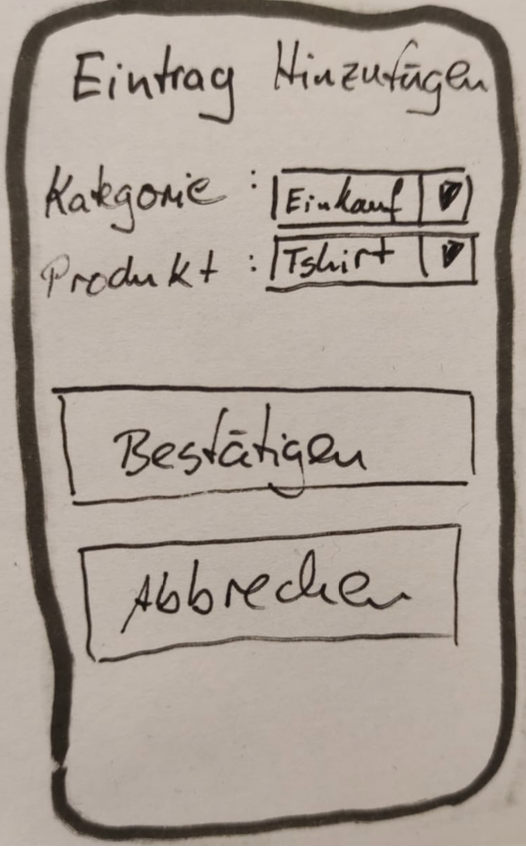 Eintrag Hinzufügen
Kategorie : Einkauf
Produkt : Tshirt
Bestätigen
Abbrechen